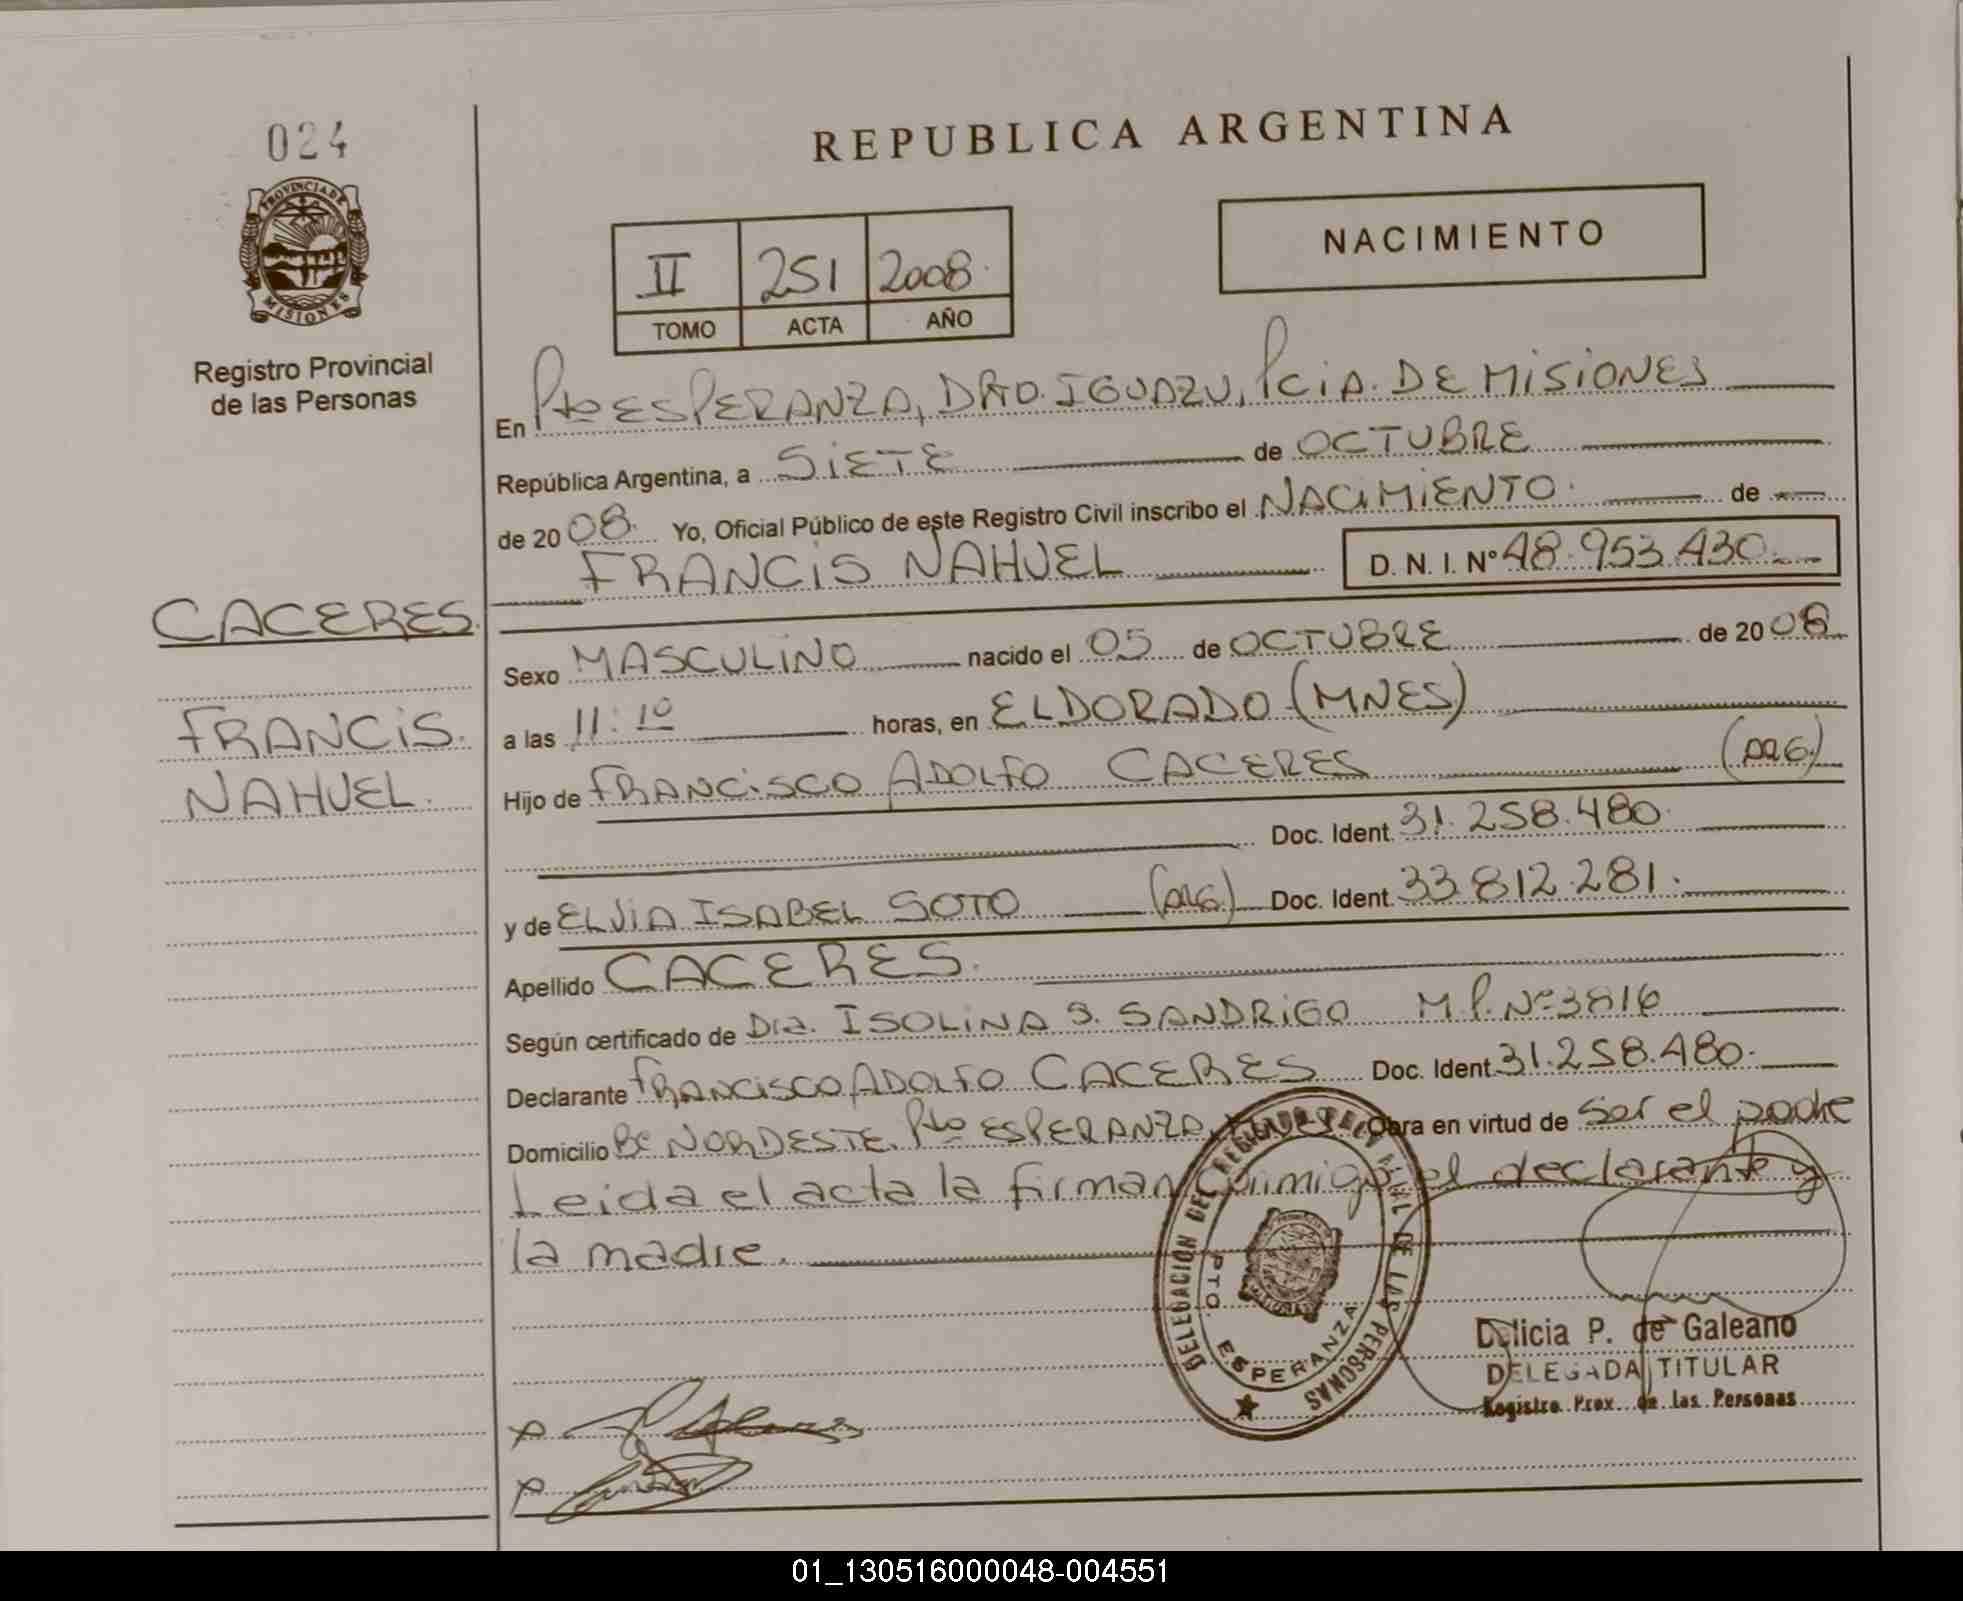 024
REPUBLICA ARGENTINA
PROVINCIA DE MISIONES
Registro Provincial
de las Personas
II 251 2008
TOMO ACTA AÑO
NACIMIENTO
En Pto ESPERANZA, DPTO. IGUAZU, Pcia. DE MISIONES
República Argentina, a SIETE de OCTUBRE
de 2008. Yo, Oficial Público de este Registro Civil inscribo el NACIMIENTO. de
FRANCIS NAHUEL D. N. I. Nº 48.953.430
CACERES.
FRANCIS.
NAHUEL.
Sexo MASCULINO nacido el 05 de OCTUBRE de 2008
a las 11:10 horas, en ELDORADO (MNES)
Hijo de FRANCISCO ADOLFO CACERES (ARG.)
Doc. Ident. 31.258.480.
y de ELVIA ISABEL SOTO (ARG.) Doc. Ident. 33.812.281.
Apellido CACERES.
Según certificado de Dra. ISOLINA S. SANDRIGO M.P. Nº 3816
Declarante FRANCISCO ADOLFO CACERES Doc. Ident. 31.258.480.
Domicilio Bº NORDESTE. Pto ESPERANZA, Obra en virtud de ser el padre
Leida el acta la firman conmigo el declarante y
la madre.
DELEGACIÓN DEL REGISTRO PROVINCIAL DE LAS PERSONAS
PTO. ESPERANZA
Delicia P. de Galeano
DELEGADA TITULAR
Registro Prov. de las Personas
01_130516000048-004551